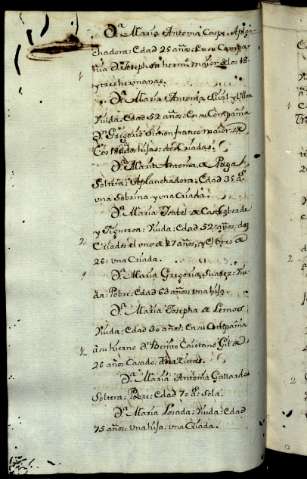 Dª Maria Antonia Corps, Apla
chadora: Edad 25 años: En su Compa
ñia Dⁿ Joseph su herm.º maior de los 18
y tres hermanas.
Dª Maria Antonia
Viuda: Edad 52 años: En su Compania
Dⁿ Gregorio Simon franco maior de
los 18: dos hijas: dos Criadas.
Dª Maria Antonia de Puga
Soltera: Aplanchadora: Edad 35: una
una Sobrina: y una Criada.
Dª Maria
y Figueroa: Viuda: Edad 52 años: dos
Criados: el uno de 27 años; y el otro de
26: una Criada.
Dª Maria Gregoria Suarez: Viu
da: Pobre: Edad 63 años: una hija.
Dª Maria Josepha de Lemos:
Viuda: Edad 30 años: En su Compañia
su hermano Dⁿ Benito Caietano Gil de
26 años: Casado:
Dª Maria Antonia Gallardo:
Soltera: Pobre: Edad 70: Sola.
Dª Maria Losada: Viuda: Edad
75 años: una hija: una Criada.